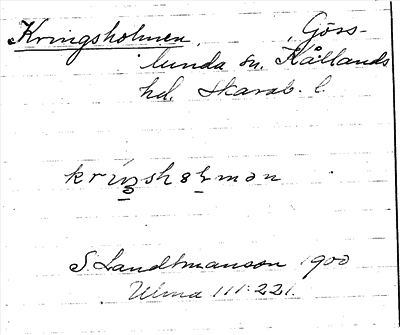 Kringsholmen, Görs-
lunda sn. Kållands
hd. Skarab. l.
S. Landtmanson 1900
Ulma 111:221.